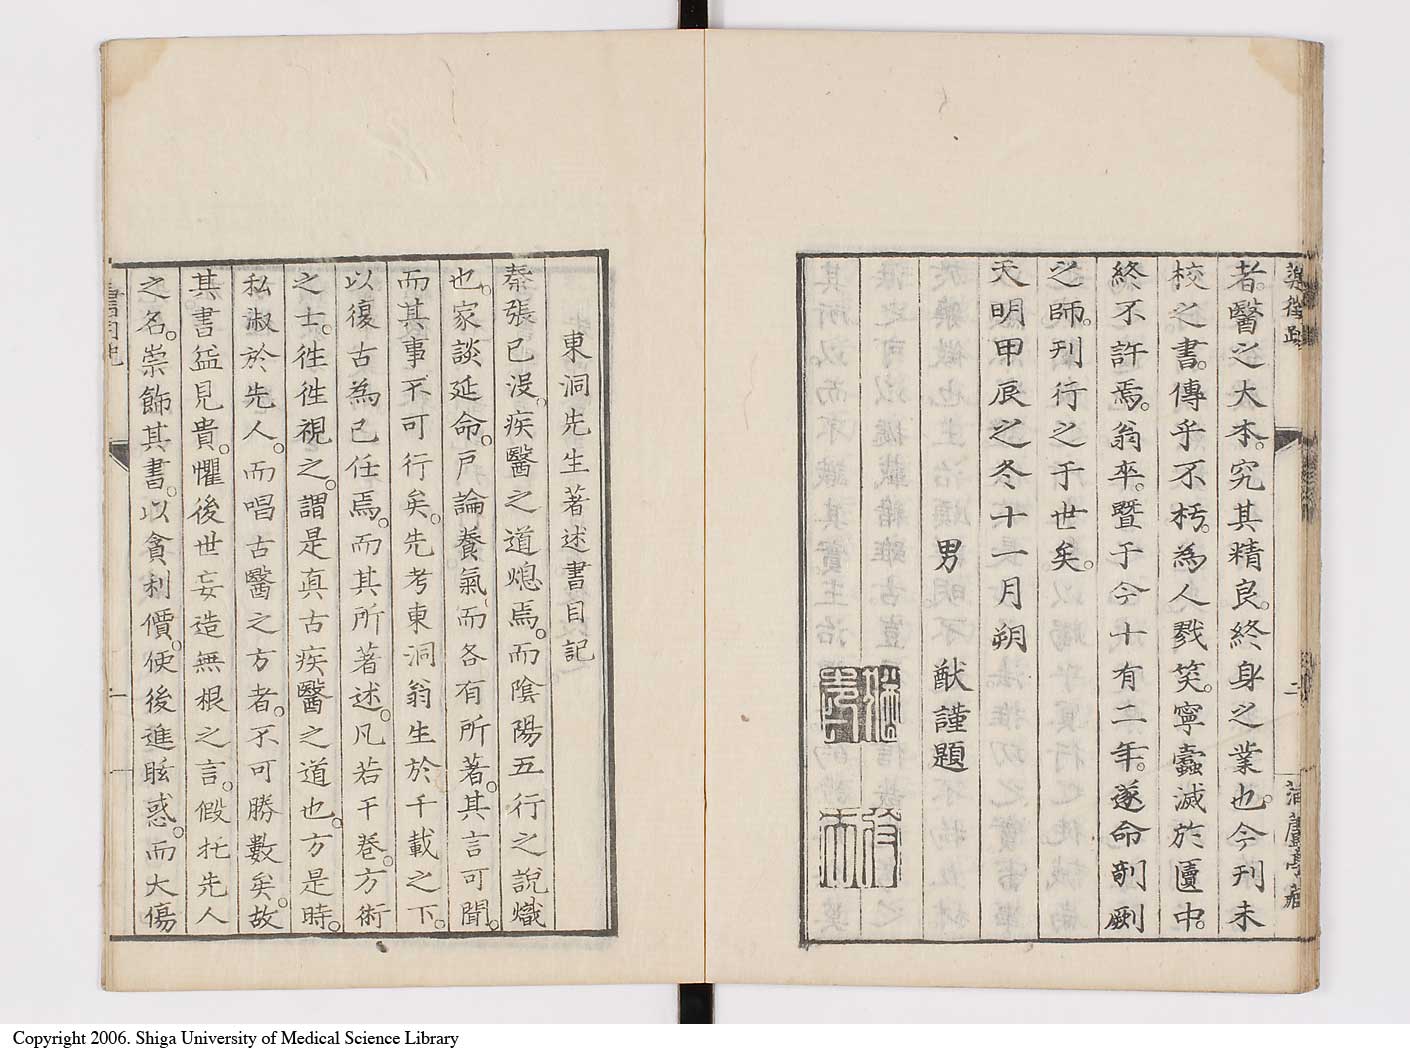 者。醫之大本。究其精良。終身之業也。今刊未
校之書。傳乎不朽。為人戮笑。寧蠹滅於匱中。
終不許焉。翁卒。暨于今十有二年。遂命剞劂
之師。刊行之于世矣。
天明甲辰之冬十一月朔
男 猷謹題
東洞先生著述書目記
秦張已沒。疾醫之道熄焉。而陰陽五行之說熾
也。家談延命。戶論養氣。而各有所著。其言可聞。
而其事不可行矣。先考東洞翁生於千載之下。
以復古為己任焉。而其所著述。凡若干卷。方術
之士。往往視之。謂是真古疾醫之道也。方是時。
私淑於先人。而唱古醫之方者。不可勝數矣。故
其書益見貴。懼後世妄造無根之言。假托先人
之名。崇飾其書。以貪利價。使後進眩惑。而大傷
二
一
Copyright 2006. Shiga University of Medical Science Library